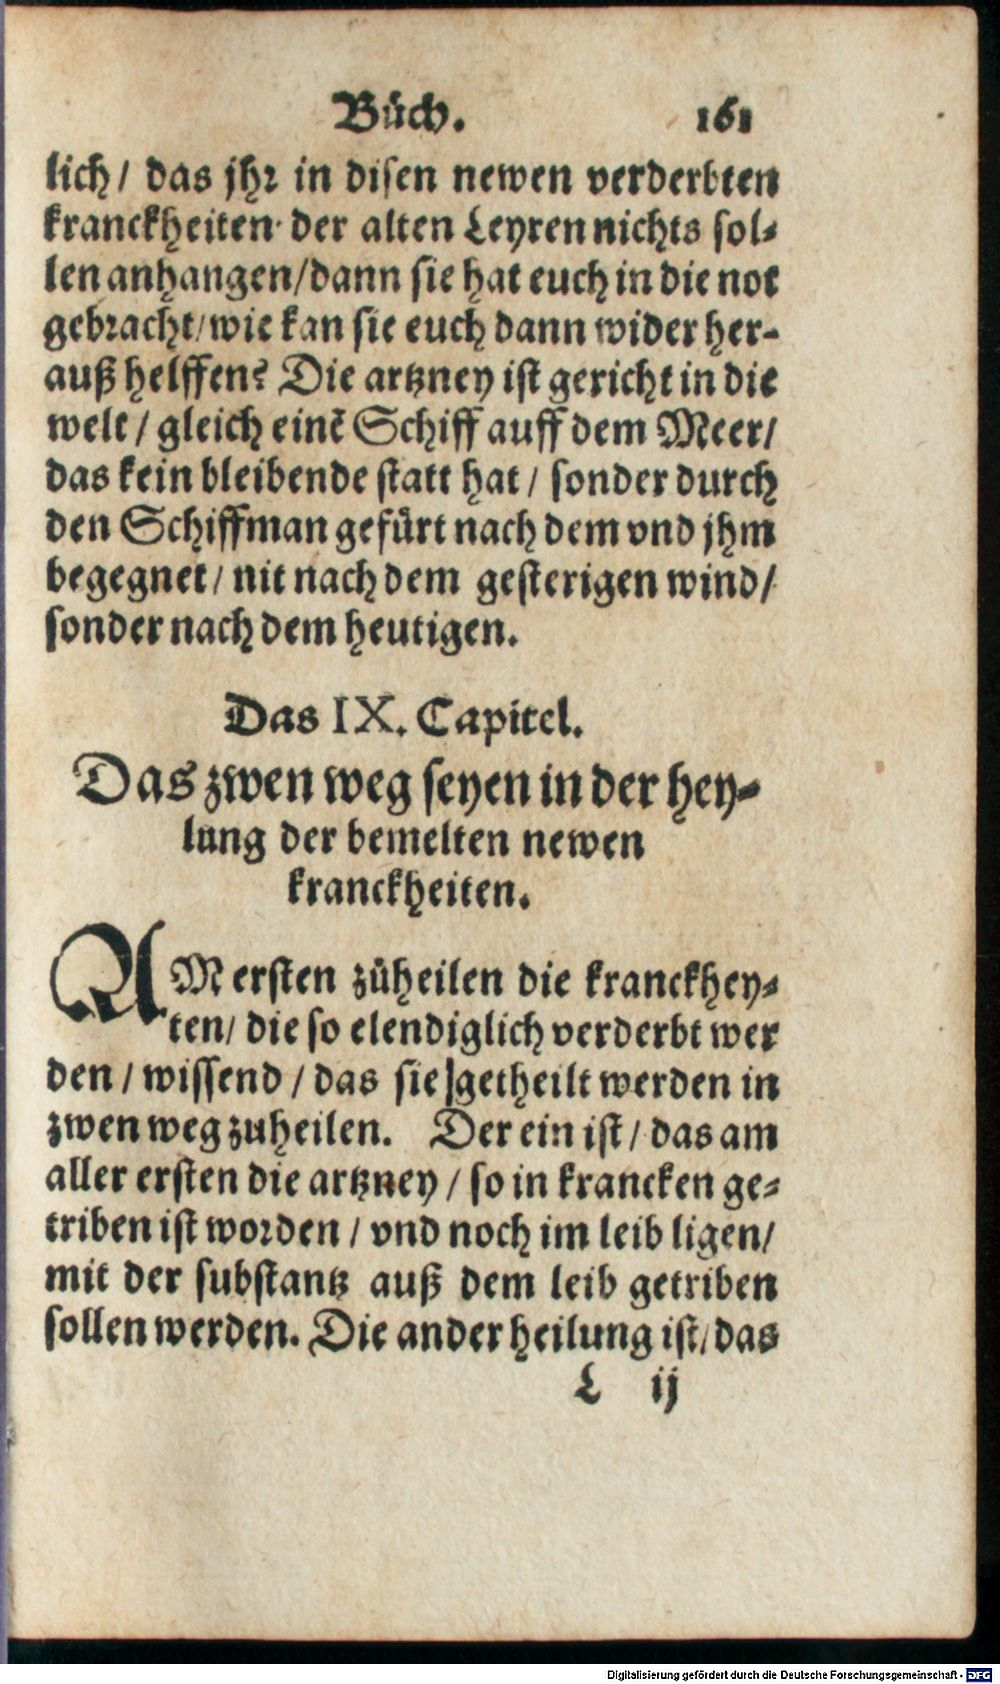 Bůch. 161
lich/ das jhr in disen newen verderbten
kranckheiten der alten Leyren nichts sol-
len anhangen/dann sie hat euch in die not
gebracht/wie kan sie euch dann wider her-
auß helffen? Die artzney ist gericht in die
welt / gleich einē Schiff auff dem Meer/
das kein bleibende statt hat / sonder durch
den Schiffman gefürt nach dem vnd jhm
begegnet/ nit nach dem gesterigen wind/
sonder nach dem heutigen.
Das IX. Capitel.
Das zwen weg seyen in der hey-
lung der bemelten newen
kranckheiten.
AM ersten zůheilen die kranckhey-
ten/ die so elendiglich verderbt wer
den / wissend / das sie getheilt werden in
zwen weg zuheilen. Der ein ist / das am
aller ersten die artzney / so in krancken ge-
triben ist worden / vnd noch im leib ligen/
mit der substantz auß dem leib getriben
sollen werden. Die ander heilung ist/das
L ij
Digitalisierung gefördert durch die Deutsche Forschungsgemeinschaft - DFG